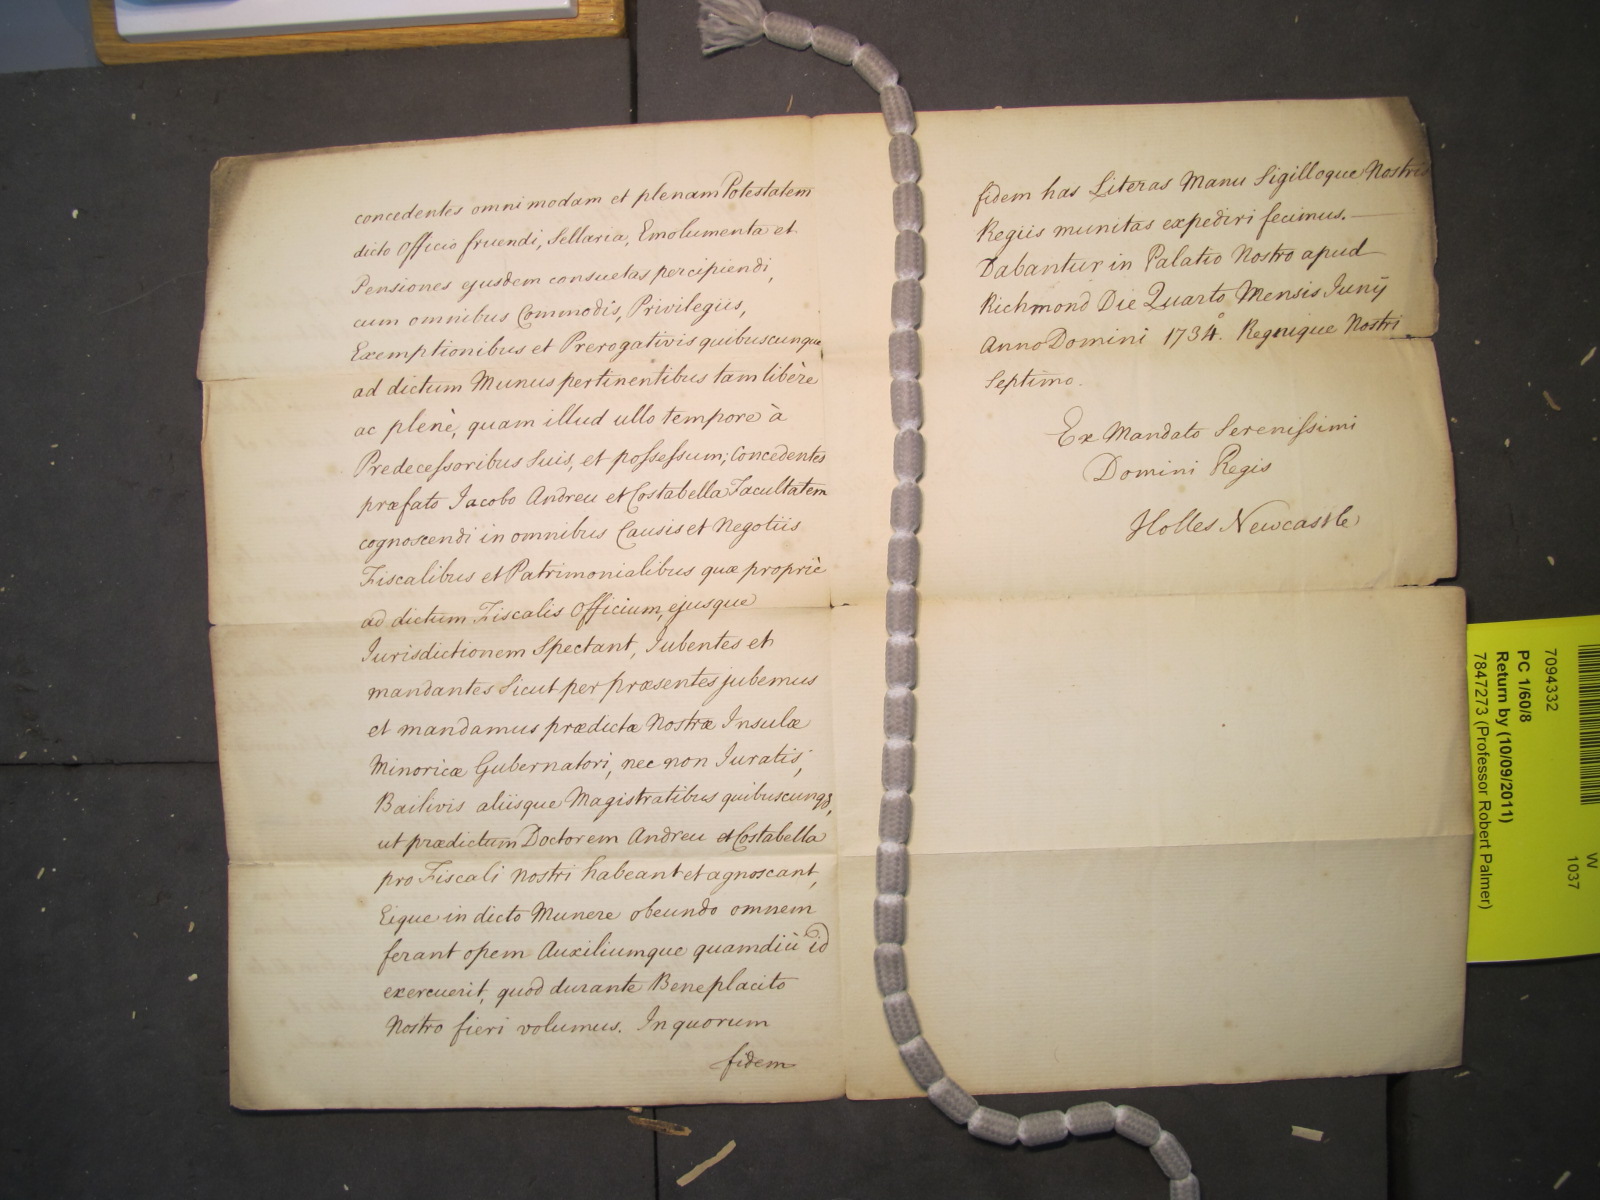 concedentes omnimodam et plenam Potestatem
dicto Officio fruendi, Sellaria, Emolumenta et
Pensiones ejusdem consuetas percipiendi,
cum omnibus Commodis, Privilegiis,
Exemptionibus et Prerogativis quibuscunque
ad dictum Munus pertinentibus tam liberè
ac plenè, quam illud ullo tempore à
Predecessoribus suis, et possessum; Concedentes
præfato Jacobo Andreu et Costabella Facultatem
cognoscendi in omnibus Causis et Negotiis
Fiscalibus et Patrimonialibus quæ propriè
ad dictum Fiscalis Officium, ejusque
Jurisdictionem Spectant, Jubentes et
mandantes sicut per præsentes jubemus
et mandamus prædictæ Nostræ Insulæ
Minoricæ Gubernatori, nec non Juratis,
Bailivis aliisque Magistratibus quibuscunqꝫ,
ut prædictum Doctorem Andreu et Costabella
pro Fiscali Nostri habeant et agnoscant,
Eique in dicto Munere obeundo omnem
ferant opem Auxiliumque quamdiù id
exercuerit, quod durante Beneplacito
Nostro fieri volumus. In quorum
fidem
fidem has Literas Manu Sigilloque Nostris
Regiis munitas expediri fecimus.
Dabantur in Palatio Nostro apud
Richmond Die Quarto Mensis Junij
Anno Domini 1734º. Regnique Nostri
Septimo.
Ex Mandato Serenissimi
Domini Regis
Holles Newcastle
7094332
PC 1/60/8
Return by (10/09/2011)
7847273 (Professor Robert Palmer)
W
1037